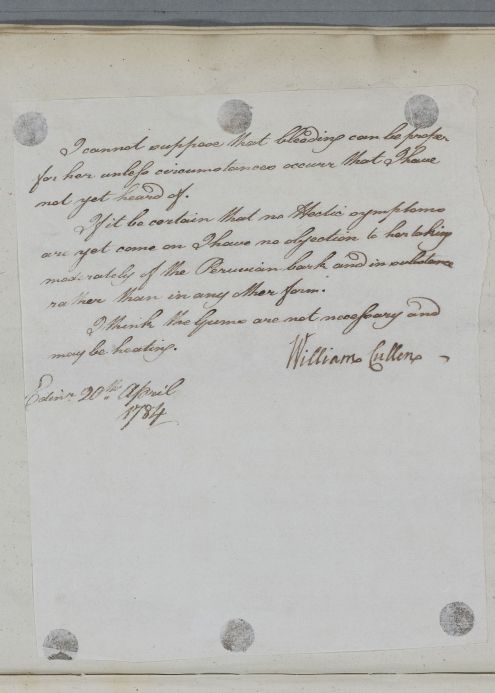 I cannot suppose that bleeding can be proper
for her unless circumstances occurr that I have
not yet heard of.
If it be certain that no Hectic symptoms
are yet come on I have no objection to her taking
moderately of the Peruvian bark and in substance
rather than in any other form.
I think the Gums are not necessary and
may be heating.
William Cullen
Edinr 20th April
1784